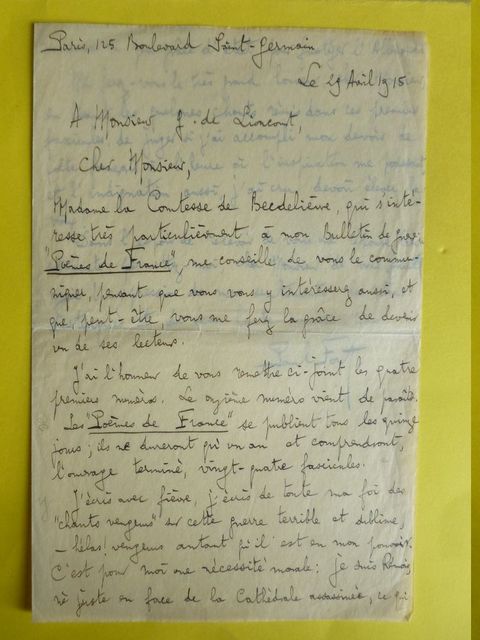 Paris, 125 Boulevard Saint-Germain
Le 29 Avril 1915
A Monsieur G. de Lioncourt,
Cher Monsieur,
Madame la Comtesse de Becdelièvre, qui s'inté-
resse très particulièrement à mon Bulletin de guerre
"Poèmes de France", me conseille de vous le commu-
niquer, pensant que vous vous y intéresserez aussi, et
que, peut-être, vous me ferez la grâce de devenir
un de ses lecteurs.
J'ai l'honneur de vous remettre ci-joint les quatre
premiers numéros. Le onzième numéro vient de paraître.
Les "Poèmes de France" se publient tous les quinze
jours ; ils ne dureront qu'un an et comprendront,
l'ouvrage terminé, vingt-quatre fascicules.
J'écris avec fièvre, j'écris de toute ma foi des
"chants vengeurs" sur cette guerre terrible et sublime,
— hélas! vengeurs autant qu'il est en mon pouvoir.
C'est pour moi une nécessité morale : je suis Rémois,
né juste en face de la Cathédrale assassinée, ce qui
Paul Fort